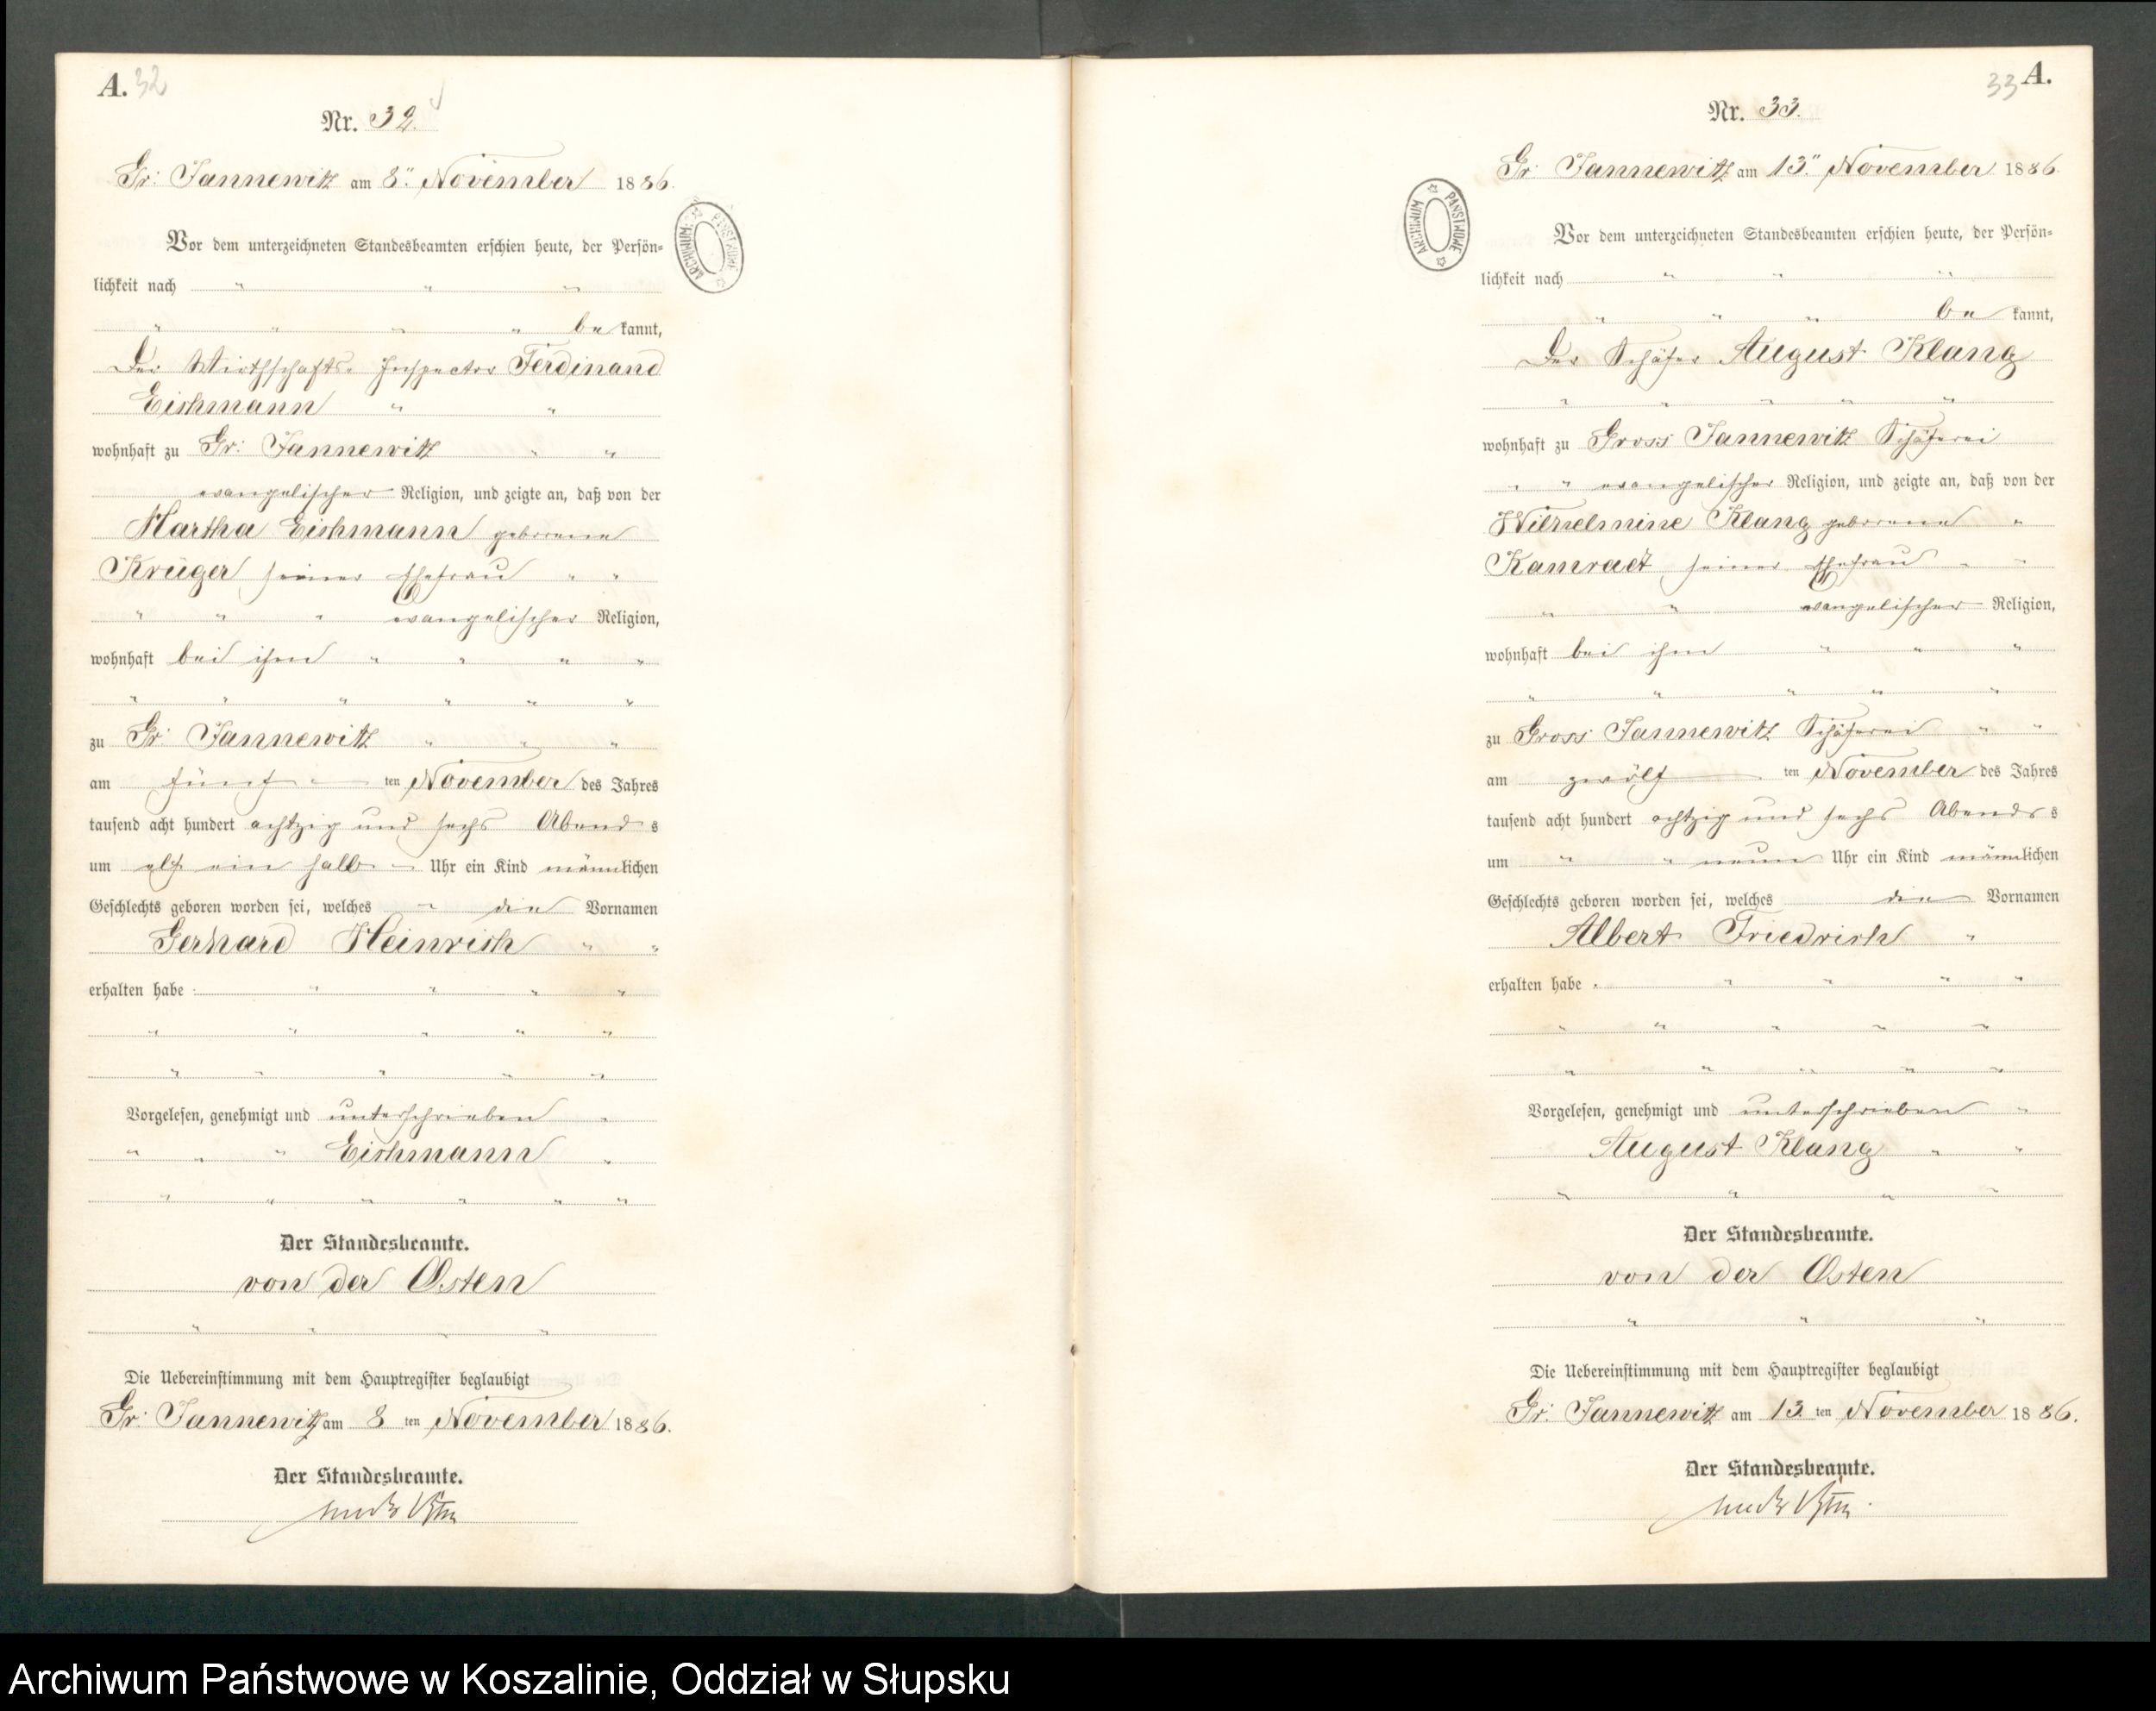 A. 32
Nr. 32.
Gr: Jannewitz am 8ⁿ November 1886.
Vor dem unterzeichneten Standesbeamten erschien heute, der Persön-
lichkeit nach
be kannt,
Der Wirthschafts-Inspector Ferdinand
Eichmann
wohnhaft zu Gr: Jannewitz
evangelischer Religion, und zeigte an, daß von der
Martha Eichmann geborene
Krüger seiner Ehefrau
evangelischer Religion,
wohnhaft bei ihm
zu Gr: Jannewitz
am fünf ten November des Jahres
tausend acht hundert achtzig und sechs Abend s
um elf ein halb Uhr ein Kind männlichen
Geschlechts geboren worden sei, welches die Vornamen
Gerhard Heinrich
erhalten habe
Vorgelesen, genehmigt und unterschrieben
Eichmann
Der Standesbeamte.
von der Osten
Die Uebereinstimmung mit dem Hauptregister beglaubigt
Gr: Jannewitz am 8 ten November 1886.
Der Standesbeamte.
von der Osten
ARCHIWUM PAŃSTWOWE
33 A.
Nr. 33.
Gr: Jannewitz am 13ⁿ November 1886.
Vor dem unterzeichneten Standesbeamten erschien heute, der Persön-
lichkeit nach
be kannt,
Der Schäfer August Klang
wohnhaft zu Gross Jannewitz Schäferei
evangelischer Religion, und zeigte an, daß von der
Wilhelmine Klang geborene
Kamradt seiner Ehefrau
evangelischer Religion,
wohnhaft bei ihm
zu Gross Jannewitz Schäferei
am zwölf ten November des Jahres
tausend acht hundert achtzig und sechs Abends s
um neun Uhr ein Kind männlichen
Geschlechts geboren worden sei, welches die Vornamen
Albert Friedrich
erhalten habe
Vorgelesen, genehmigt und unterschrieben
August Klang
Der Standesbeamte.
von der Osten
Die Uebereinstimmung mit dem Hauptregister beglaubigt
Gr: Jannewitz am 13 ten November 1886.
Der Standesbeamte.
von der Osten
ARCHIWUM PAŃSTWOWE
Archiwum Państwowe w Koszalinie, Oddział w Słupsku